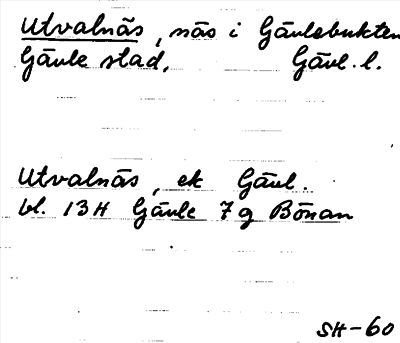 Utvalnäs, näs i Gävlebukten
Gävle stad, Gävl. l.
Utvalnäs, ek Gävl.
bl. 13H Gävle 7g Bönan
SH-60